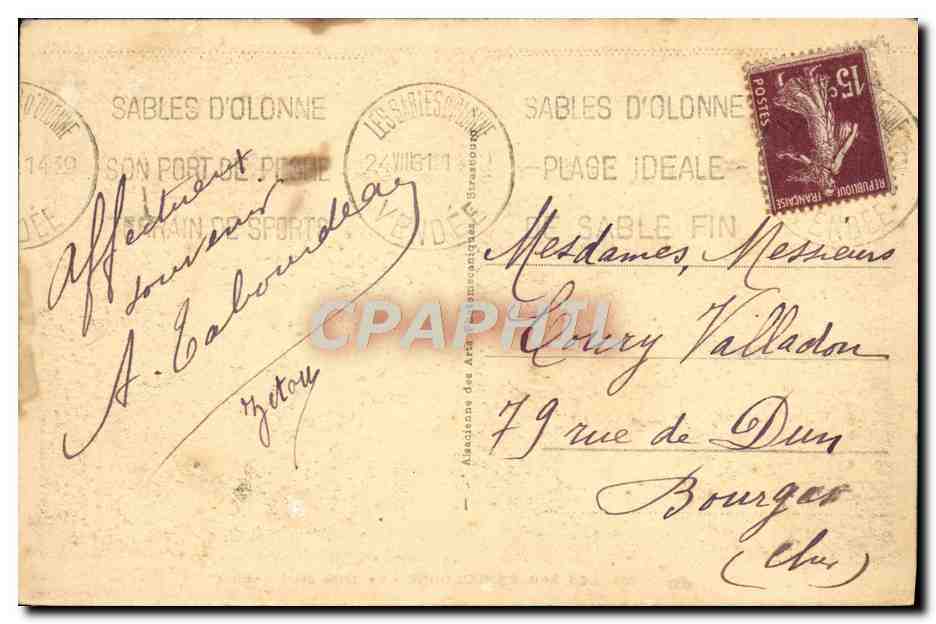 SABLES D'OLONNE
SON PORT DE PECHE
TERRAIN DE SPORTS
LES SABLES D'OLONNE
VENDÉE
SABLES D'OLONNE
PLAGE IDEALE
DE SABLE FIN
15c
POSTES
REPUBLIQUE FRANÇAISE
Affectueux
souvenir
A. Taboudeau
Alsacienne des Arts Photomécaniques, Strasbourg
Mesdames, Messieurs
Coury Valladon
79 rue de Dun
Bourges
(Cher)
CPAPHIL